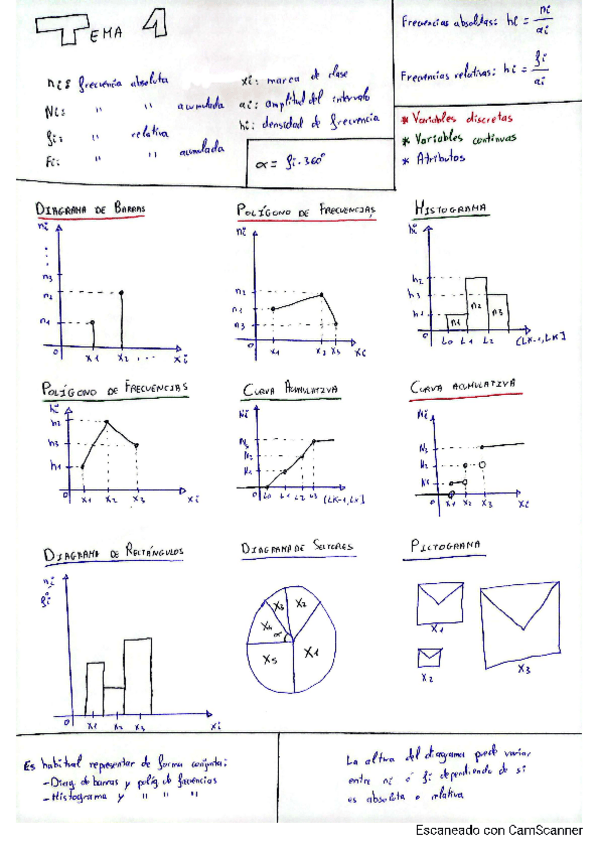 TEMA 1
ni: frecuencia absoluta
Ni: " " acumulada
fi: " relativa
Fi: " " acumulada
xi: marca de clase
ai: amplitud del intervalo
hi: densidad de frecuencia
α = fi·360º
Frecuencias absolutas: hi = ni/ai
Frecuencias relativas: hi = fi/ai
* Variables discretas
* Variables continuas
* Atributos
DIAGRAMA DE BARRAS
ni
n3
n2
n1
0 x1 x2 ... xi
POLÍGONO DE FRECUENCIAS
ni
n2
n1
n3
0 x1 x2 x3 xi
HISTOGRAMA
hi
h2
h3
h1
n1 n2 n3
0 L0 L1 L2 (LK-1,LK]
POLÍGONO DE FRECUENCIAS
hi
h2
h3
h1
0 x1 x2 x3 xi
CURVA ACUMULATIVA
Ni
N3
N2
N1
0 L0 L1 L2 L3 (LK-1,LK]
CURVA ACUMULATIVA
Ni
N3
N2
N1
0 x1 x2 x3 xi
DIAGRAMA DE RECTÁNGULOS
ni
fi
0 x1 x2 x3 xi
DIAGRAMA DE SECTORES
x3 x2
x4 α
x5 x1
PICTOGRAMA
x1
x2
x3
Es habitual representar de forma conjunta:
-Diag de barras y políg de frecuencias
-Histograma y " " "
La altura del diagrama puede variar
entre ni ó fi dependiendo de si
es absoluta o relativa
Escaneado con CamScanner